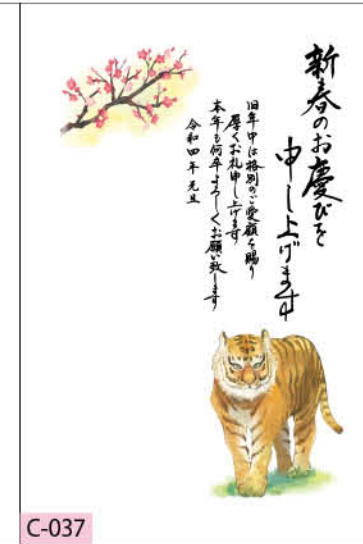 新春のお慶びを
申し上げます
旧年中は格別のご愛顧を賜り
厚くお礼申し上げます
本年も何卒よろしくお願い致します
令和四年 元旦
C-037